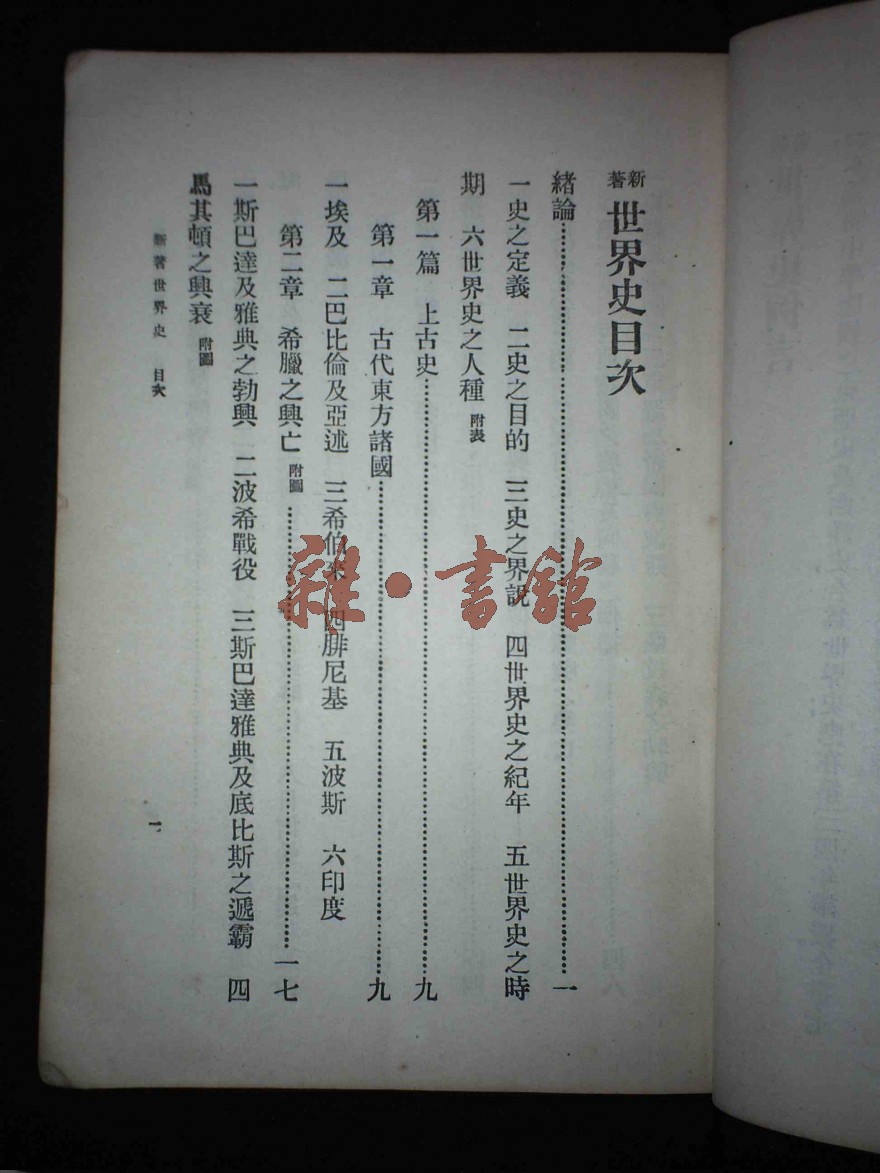 新著世界史目次
緒論……一
一史之定義　二史之目的　三史之界說　四世界史之紀年　五世界史之時
期　六世界史之人種　附表
第一篇　上古史……九
第一章　古代東方諸國……九
一埃及　二巴比倫及亞述　三希伯來　四腓尼基　五波斯　六印度
第二章　希臘之興亡　附圖……一七
一斯巴達及雅典之勃興　二波希戰役　三斯巴達雅典及底比斯之遞霸　四
馬其頓之興衰　附圖
新著世界史　目次
一
雜·書館